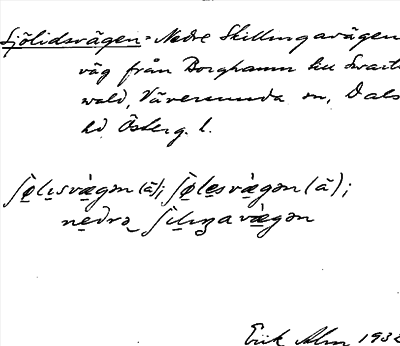 Sjölidsvägen = Nedre Skillingavägen
väg från Borghamn till Svart-
wald, Väversunda sn, Dals
hd Österg. l.
ʃø̀lɪsvæ̀gən (ā); ʃø̀lesvæ̀gən (ā);
nedrə ʃìlɪŋavæ̀gən
Erik Alm 1932